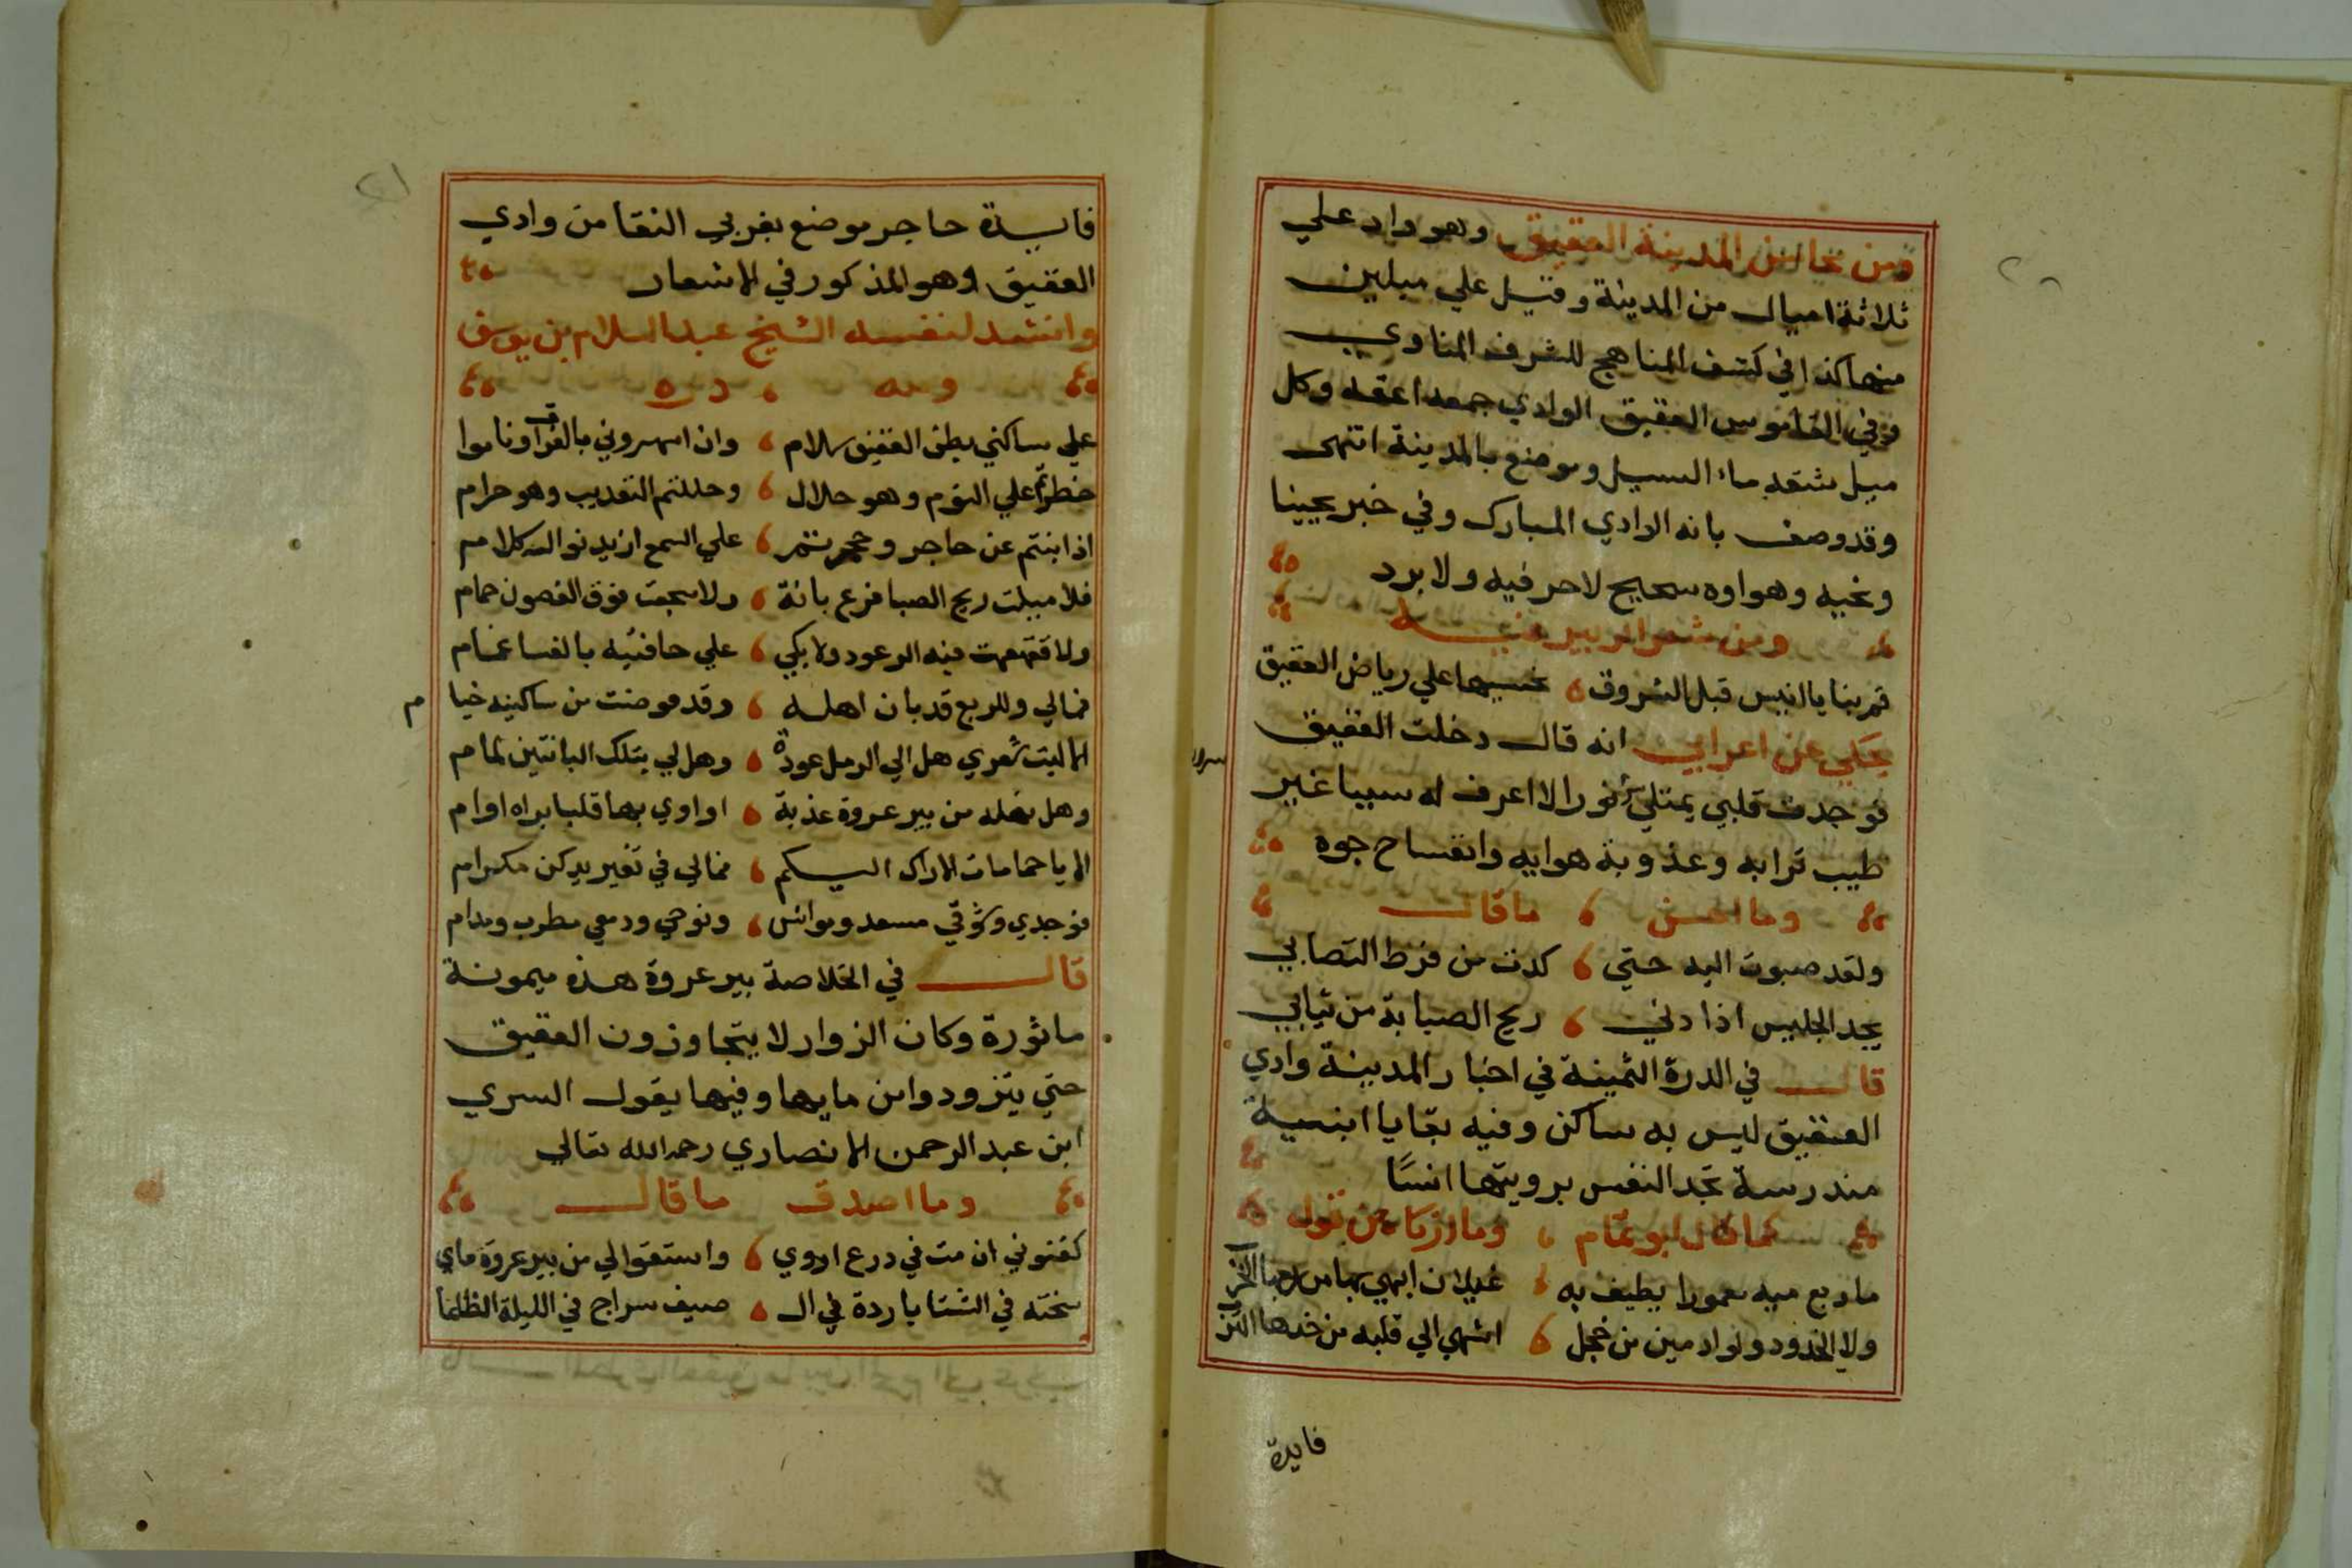 ومن محاسن المدينة العقيق وهو واد علي
ثلاثة اميال من المدينة وقيل علي ميلين
منها كذا في كشف المناهج للشرف المناوي
وفي القاموس العقيق الوادي جمعه اعقه وكل
مسيل شقه ماء السيل وموضع بالمدينة انتهى
وقد وصف بانه الوادي المبارك وفي خبر يحبنا
ونحبه وهواوه صحيح لاحر فيه ولا برد
ومن شعر الزبير فيه
قم بنا يا انيس قبل الشروق نمسيها علي رياض العقيق
حكي عن اعرابي انه قال دخلت العقيق
فوجدت قلبي يمتلي نورا لا اعرف له سببا غير
طيب ترابه وعذوبة هوايه وانفساح جوه
وما احسن ما قال
ولقد صبوت اليه حتي كدت من فرط التصابي
يجد الجليس اذا دني ريح الصبابة من ثيابي
قال في الدرة الثمينة في اخبار المدينة وادي
العقيق ليس به ساكن وفيه بقايا ابنية
مندرسة تجد النفس برويتها انسًا
كما قال ابو تمام وما ازكا من قوله
ما ربع ميه معمورا يطيف به غيلان ابهي ربا من ربها الخرب
ولا الخدود ولو ادمين من خجل اشهي الي قلبه من خدها الترب
فايدة
فايدة حاجر موضع بغربي النقا من وادي
العقيق وهو المذكور في الاشعار
وانشد لنفسه الشيخ عبد السلام بن يوسف
ولله دره
علي ساكني بطن العقيق سلام وان اسهروني بالفراق وناموا
حظرتم علي النوم وهو حلال وحللتم التعذيب وهو حرام
اذا بنتم عن حاجر وحجرتم علي السمع ان يدنو اليه كلام
فلا ميلت ريح الصبا فرع بانة ولا سجعت فوق الغصون حمام
ولا قهقهت فيه الرعود ولا بكي علي حافتيه بالعشا غمام
فمالي وللربع قد بان اهله وقد قوضت من ساكنيه خيام
الا ليت شعري هل الي الرمل عودة وهل لي بتلك البانتين لمام
وهل نهله من بير عروة عذبة اداوي بها قلبا براه اوام
الا يا حمامات الاراك اليكم فمالي في تغريدكن مرام
فوجدي وشوقي مسعد وموانس ونوحي ودمعي مطرب ومدام
قال في الخلاصة بير عروة هذه ميمونة
ماثورة وكان الزوار لا يتجاوزون العقيق
حتي يتزودوا من مايها وفيها يقول السري
ابن عبد الرحمن الانصاري رحمه الله تعالي
وما اصدق ما قال
كفنوني ان مت في درع اروي واستقوا لي من بير عروة ماي
سخنه في الشتا باردة في ال صيف سراج في الليلة الظلما